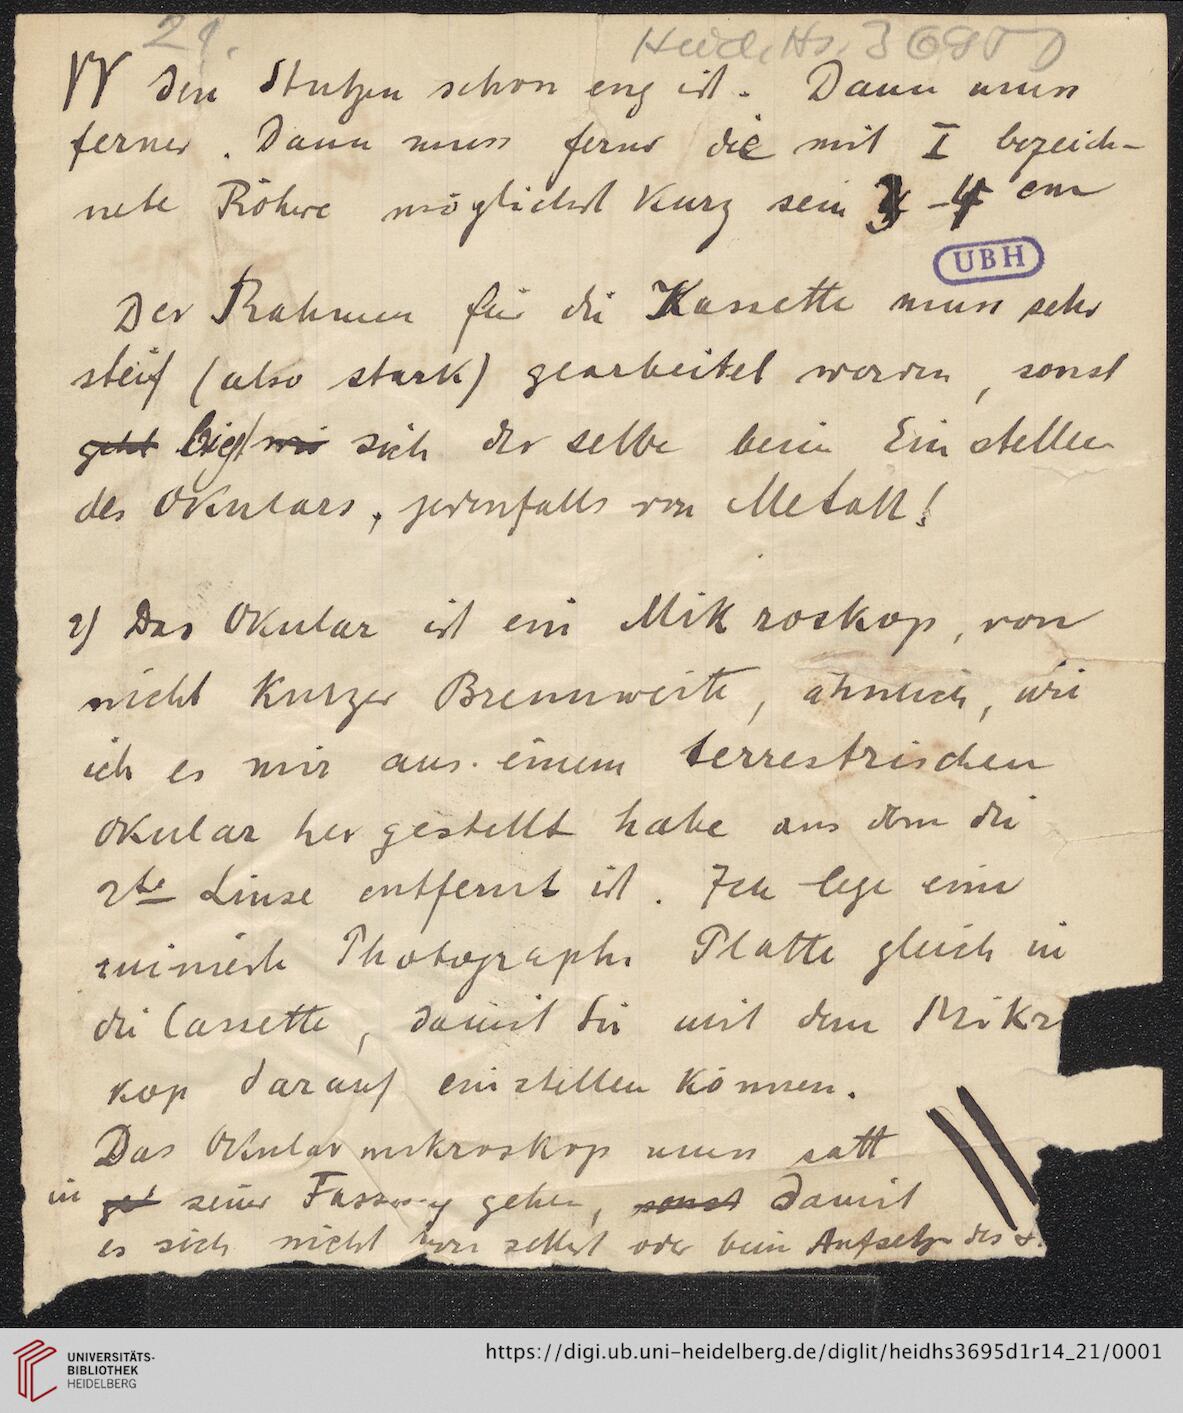 21.
Heid. Hs. 3695 D
der Stutzen schon eng ist. Dann muss
ferner. Dann muss ferner die mit I bezeich-
nete Röhre möglichst kurz sein 3-4 cm
UBH
Der Rahmen für die Kassette muss sehr
steif (also stark) gearbeitet werden, sonst
geht biegt sich der selbe beim Einstellen
des Okulars, jedenfalls von Metall!
2) Das Okular ist ein Mikroskop, von
nicht kurzer Brennweite, ähnlich, wie
ich es mir aus einem terrestrischen
Okular hergestellt habe aus dem die
2te Linse entfernt ist. Ich lege eine
ruinierte Photograph. Platte gleich in
die Cassette, damit Sie mit dem Mikr
kop darauf einstellen können.
Das Okularmikroskop muss satt
in seiner Fassung gehen, sonst damit
es sich nicht von selbst oder beim Aufsetzen des
UNIVERSITÄTS-
BIBLIOTHEK
HEIDELBERG
https://digi.ub.uni-heidelberg.de/diglit/heidhs3695d1r14_21/0001